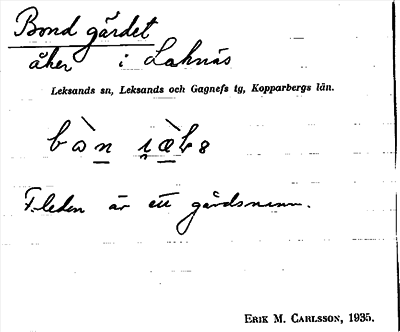 Bond gärdet
åker i Laknäs
Leksands sn, Leksands och Gagnefs tg, Kopparbergs län.
F.leden är ett gårdsnamn.
ERIK M. CARLSSON, 1935.